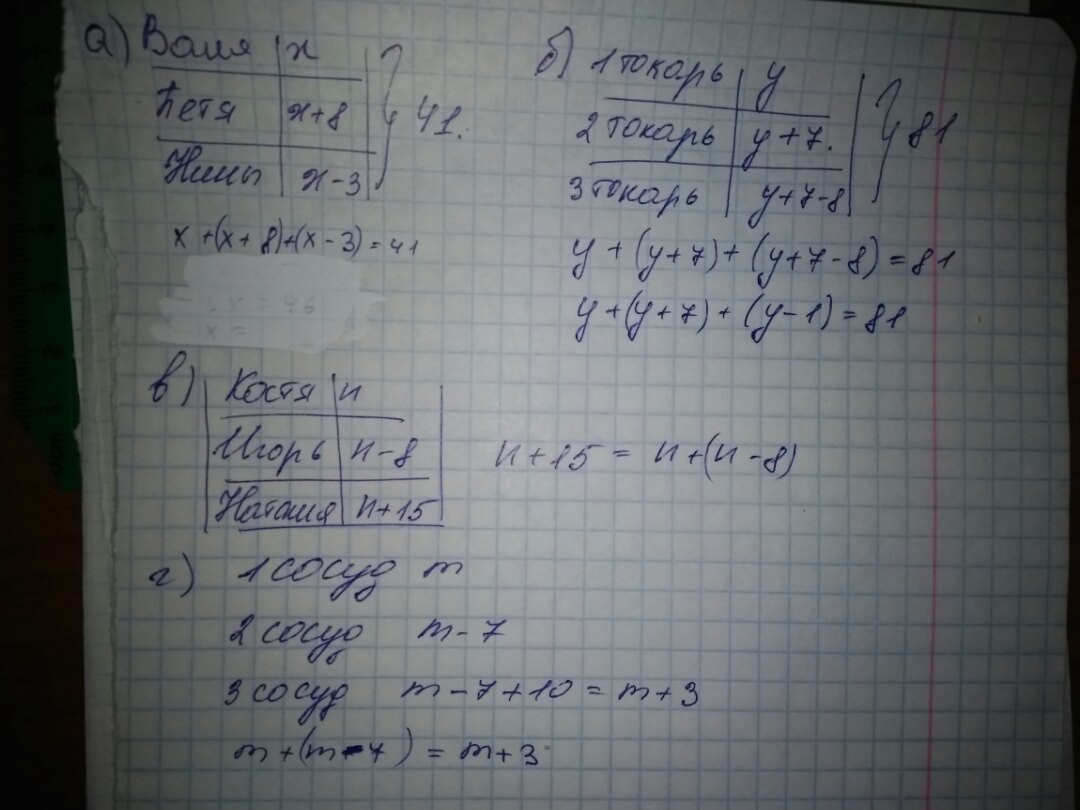 а) Воля х
Петя х+8 } 41.
Нины х-3
х+(х+8)+(х-3)=41
х = 46
х =
б) 1 токарь у
2 токарь у+7. } 81
3 токарь у+7-8
у+(у+7)+(у+7-8)=81
у+(у+7)+(у-1)=81
в) Костя n
Игорь n-8
Наташа n+15
n+15 = n+(n-8)
г) 1 сосуд m
2 сосуд m-7
3 сосуд m-7+10=m+3
m+(m-7)=m+3